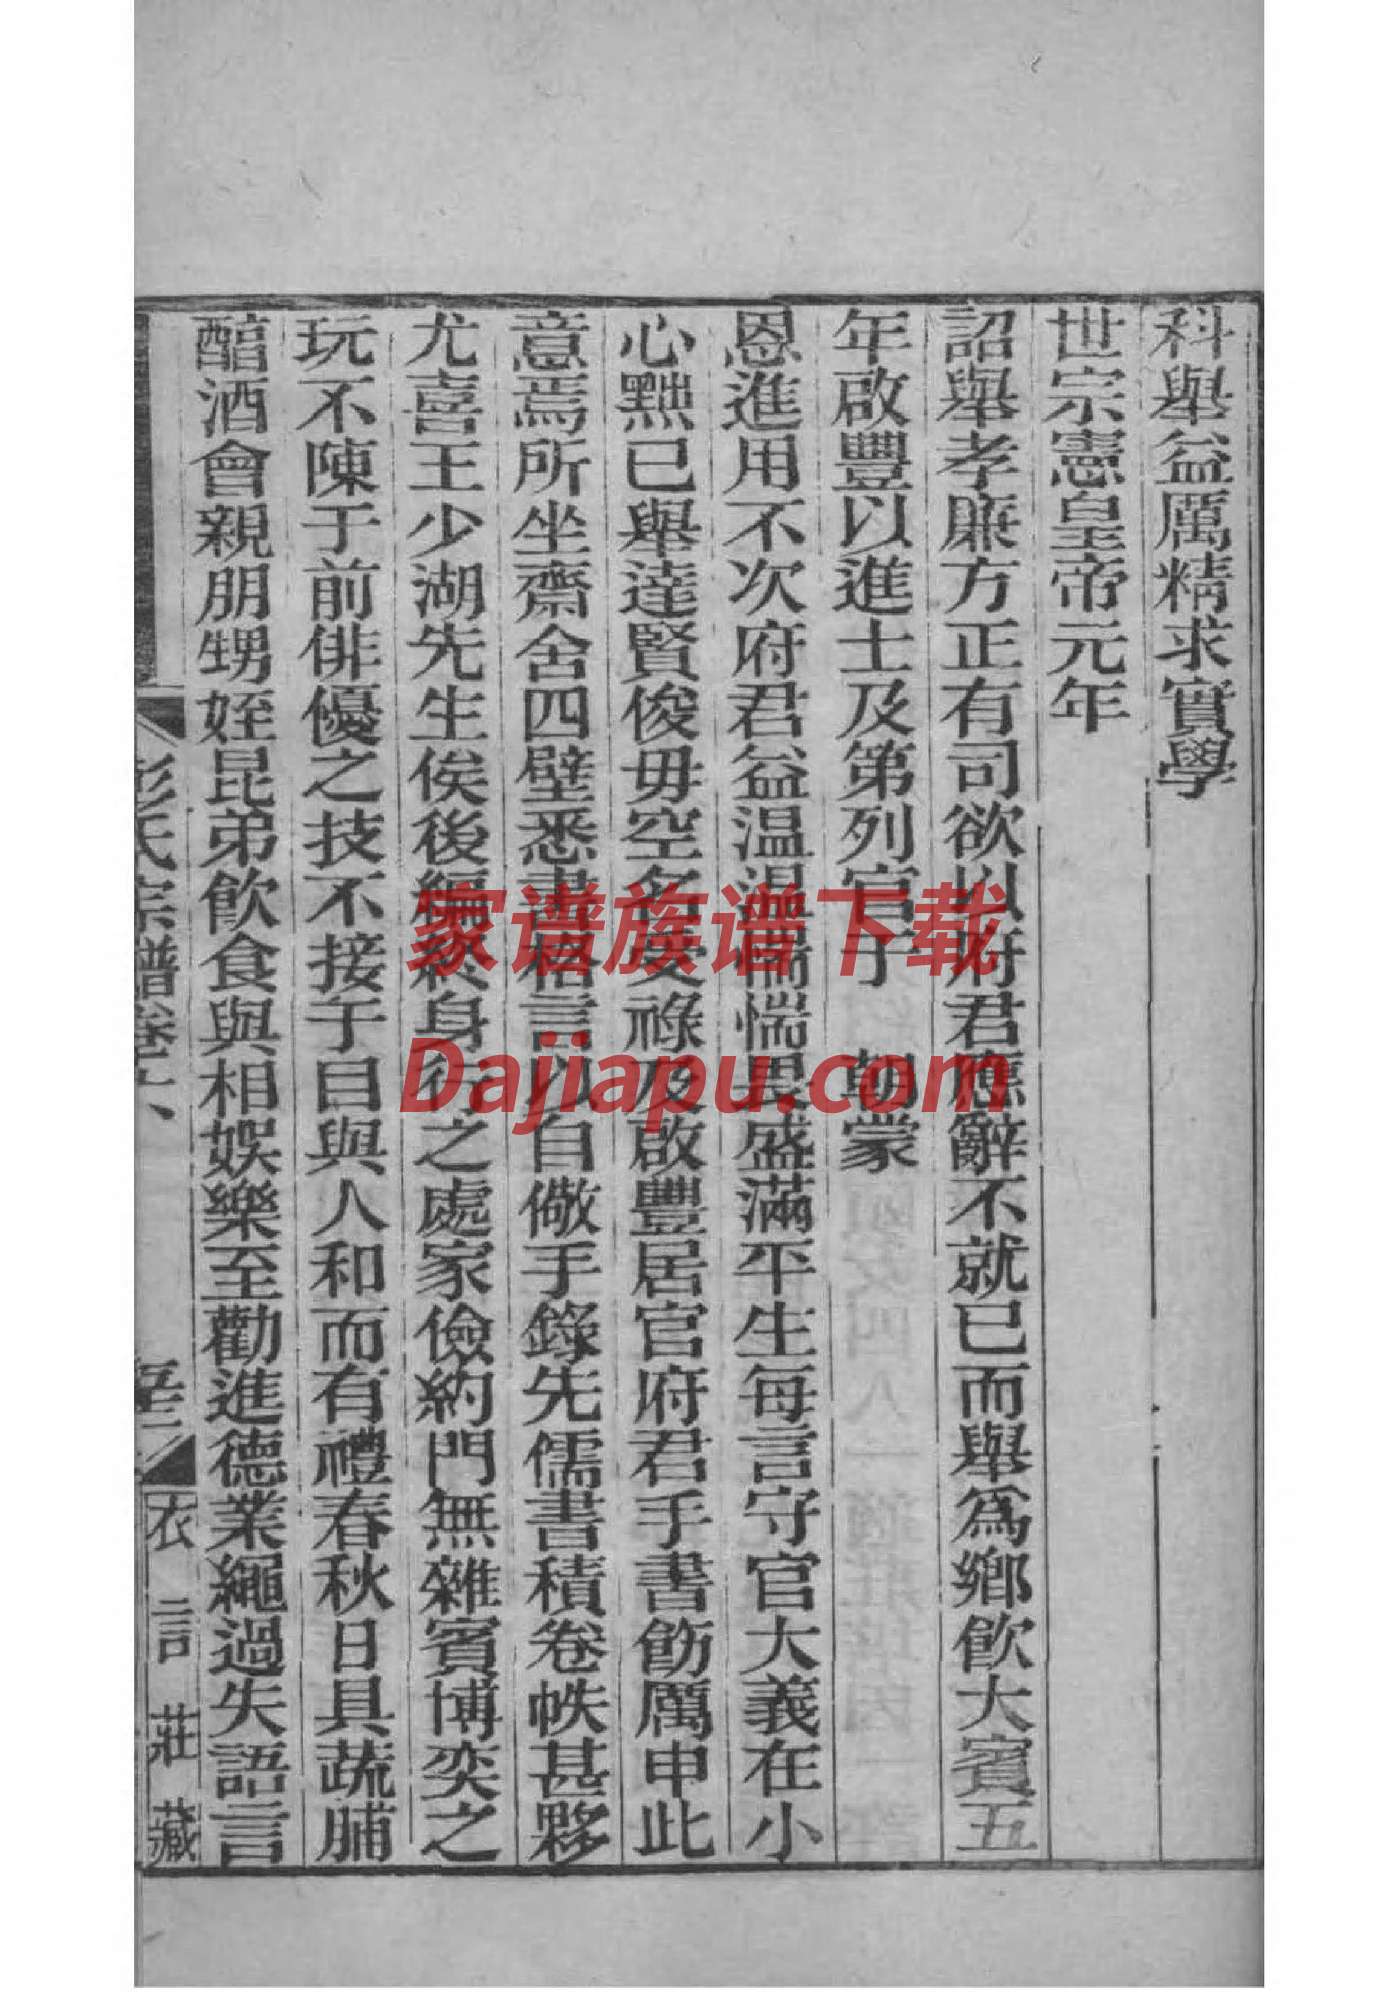 科舉益厲精求實學
世宗憲皇帝元年
詔舉孝廉方正有司欲以府君應辭不就已而舉爲鄉飲大賓五
年啟豐以進士及第列官于 朝蒙
恩進用不次府君益温温惴惴畏盛滿平生每言守官大義在小
心黜已舉達賢俊毋空名受祿及啟豐居官府君手書飭厲申此
意焉所坐齋舍四壁悉書格言以自儆手錄先儒書積卷帙甚夥
尤喜王少湖先生俟後編終身行之處家儉約門無雜賓博奕之
玩不陳于前俳優之技不接于目與人和而有禮春秋日具蔬脯
醅酒會親朋甥姪昆弟飲食與相娛樂至勸進德業繩過失語言
彭氏宗譜卷
衣言莊藏
家谱族谱下载
Dajiapu.com